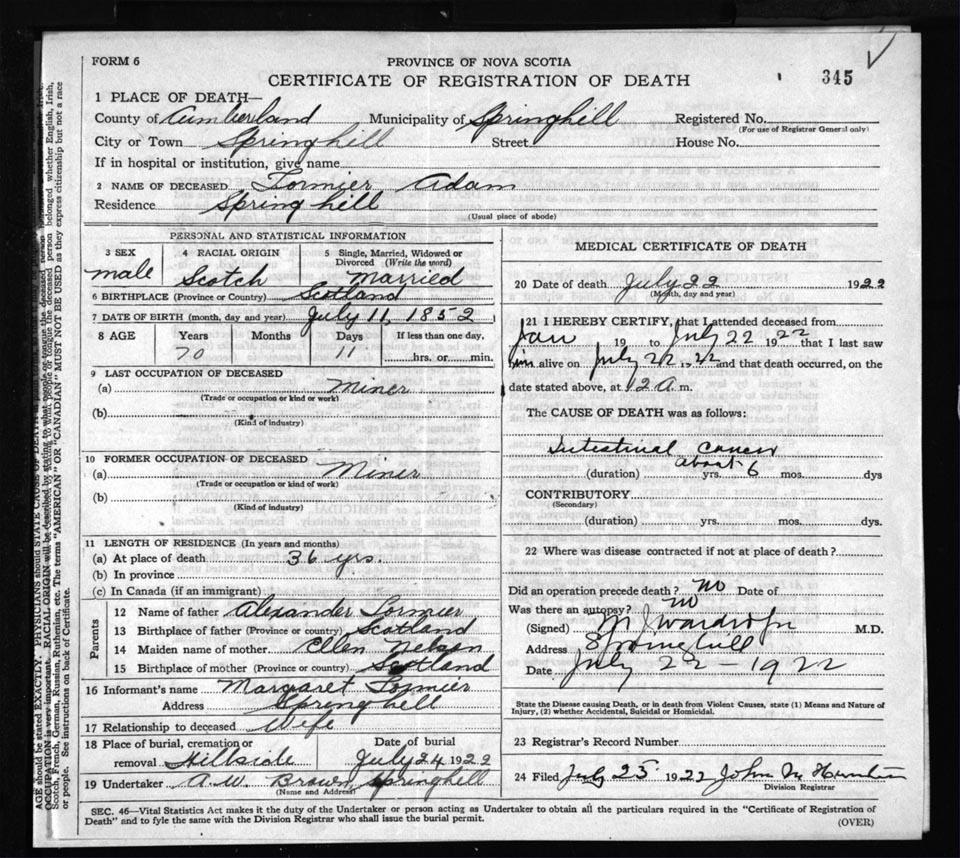 FORM 6
PROVINCE OF NOVA SCOTIA
CERTIFICATE OF REGISTRATION OF DEATH
345
1 PLACE OF DEATH—
County of Cumberland Municipality of Springhill Registered No.
(For use of Registrar General only)
City or Town Springhill Street House No.
If in hospital or institution, give name
2 NAME OF DECEASED Lormier Adam
Residence Springhill
(Usual place of abode)
PERSONAL AND STATISTICAL INFORMATION
3 SEX 4 RACIAL ORIGIN 5 Single, Married, Widowed or Divorced (Write the word)
male Scotch Married
6 BIRTHPLACE (Province or Country) Scotland
7 DATE OF BIRTH (month, day and year) July 11, 1852
8 AGE Years Months Days If less than one day,
70 11 hrs. or min.
9 LAST OCCUPATION OF DECEASED
(a) Miner
(Trade or occupation or kind or work)
(b)
(Kind of industry)
10 FORMER OCCUPATION OF DECEASED
(a) Miner
(Trade or occupation or kind or work)
(b)
(Kind of industry)
11 LENGTH OF RESIDENCE (In years and months)
(a) At place of death 36 yrs.
(b) In province
(c) In Canada (if an immigrant)
Parents
12 Name of father Alexander Lormier
13 Birthplace of father (Province or country) Scotland
14 Maiden name of mother Ellen Nelson
15 Birthplace of mother (Province or country) Scotland
16 Informant's name Margaret Lormier
Address Springhill
17 Relationship to deceased Wife
18 Place of burial, cremation or removal Hillside Date of burial July 24 1922
19 Undertaker A.W. Brown Springhill
(Name and Address)
MEDICAL CERTIFICATE OF DEATH
20 Date of death July 22 1922
(Month, day and year)
21 I HEREBY CERTIFY, that I attended deceased from
Jan 19 to July 22 1922 that I last saw
him alive on July 22 1922 and that death occurred, on the
date stated above, at 12 A.m.
The CAUSE OF DEATH was as follows:
Intestinal Cancer
about 6
(duration) yrs. mos. dys
CONTRIBUTORY
(Secondary)
(duration) yrs. mos. dys.
22 Where was disease contracted if not at place of death?
Did an operation precede death? No Date of
Was there an autopsy? no
(Signed) M.D.
Address Springhill
Date July 22 - 1922
State the Disease causing Death, or in death from Violent Causes, state (1) Means and Nature of
Injury, (2) whether Accidental, Suicidal or Homicidal.
23 Registrar's Record Number
24 Filed July 25 1922 John
Division Registrar
SEC. 46—Vital Statistics Act makes it the duty of the Undertaker or person acting as Undertaker to obtain all the particulars required in the "Certificate of Registration of
Death" and to fyle the same with the Division Registrar who shall issue the burial permit.
(OVER)